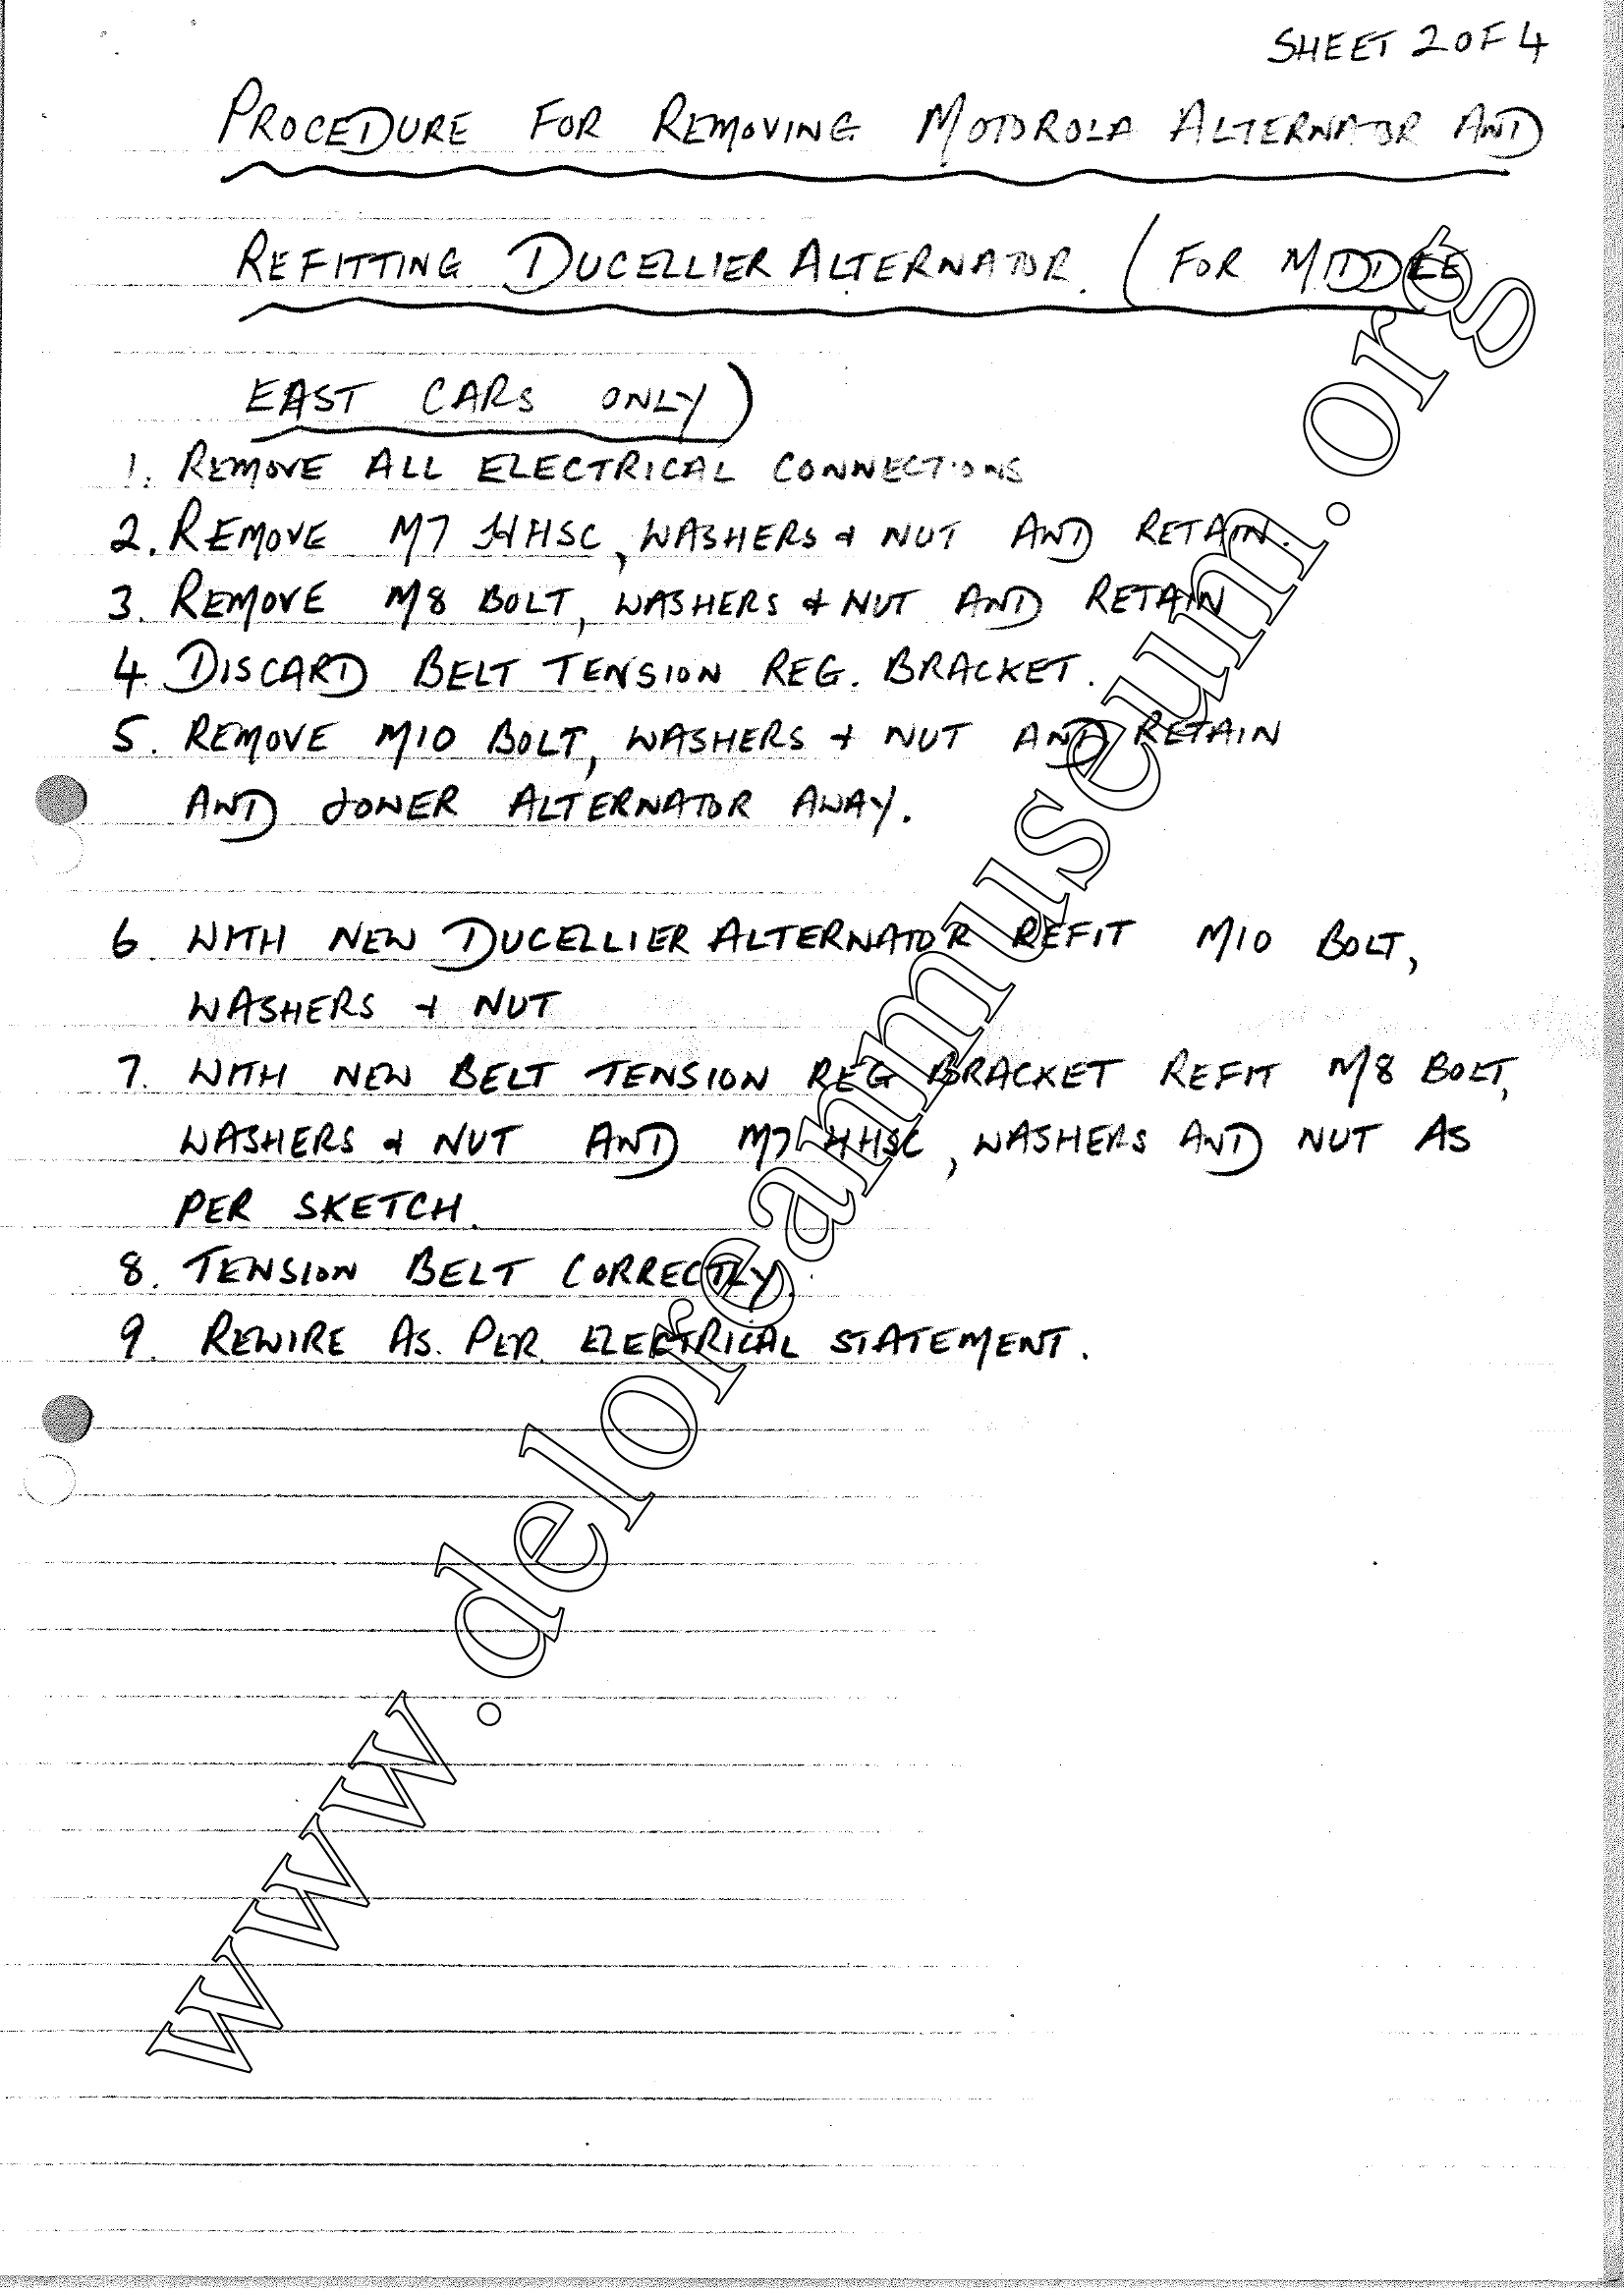 SHEET 2 OF 4
PROCEDURE FOR REMOVING MOTOROLA ALTERNATOR AND
REFITTING DUCELLIER ALTERNATOR. (FOR MIDDLE
EAST CARS ONLY)
1. REMOVE ALL ELECTRICAL CONNECTIONS
2. REMOVE M7 HHSC, WASHERS & NUT AND RETAIN.
3. REMOVE M8 BOLT, WASHERS & NUT AND RETAIN
4. DISCARD BELT TENSION REG. BRACKET.
5. REMOVE M10 BOLT, WASHERS + NUT AND RETAIN
AND LOWER ALTERNATOR AWAY.
6. WITH NEW DUCELLIER ALTERNATOR REFIT M10 BOLT,
WASHERS + NUT
7. WITH NEW BELT TENSION REG BRACKET REFIT M8 BOLT,
WASHERS & NUT AND M7 HHSC, WASHERS AND NUT AS
PER SKETCH.
8. TENSION BELT CORRECTLY.
9. REWIRE AS. PER. ELECTRICAL STATEMENT.
www.deloreanmuseum.org